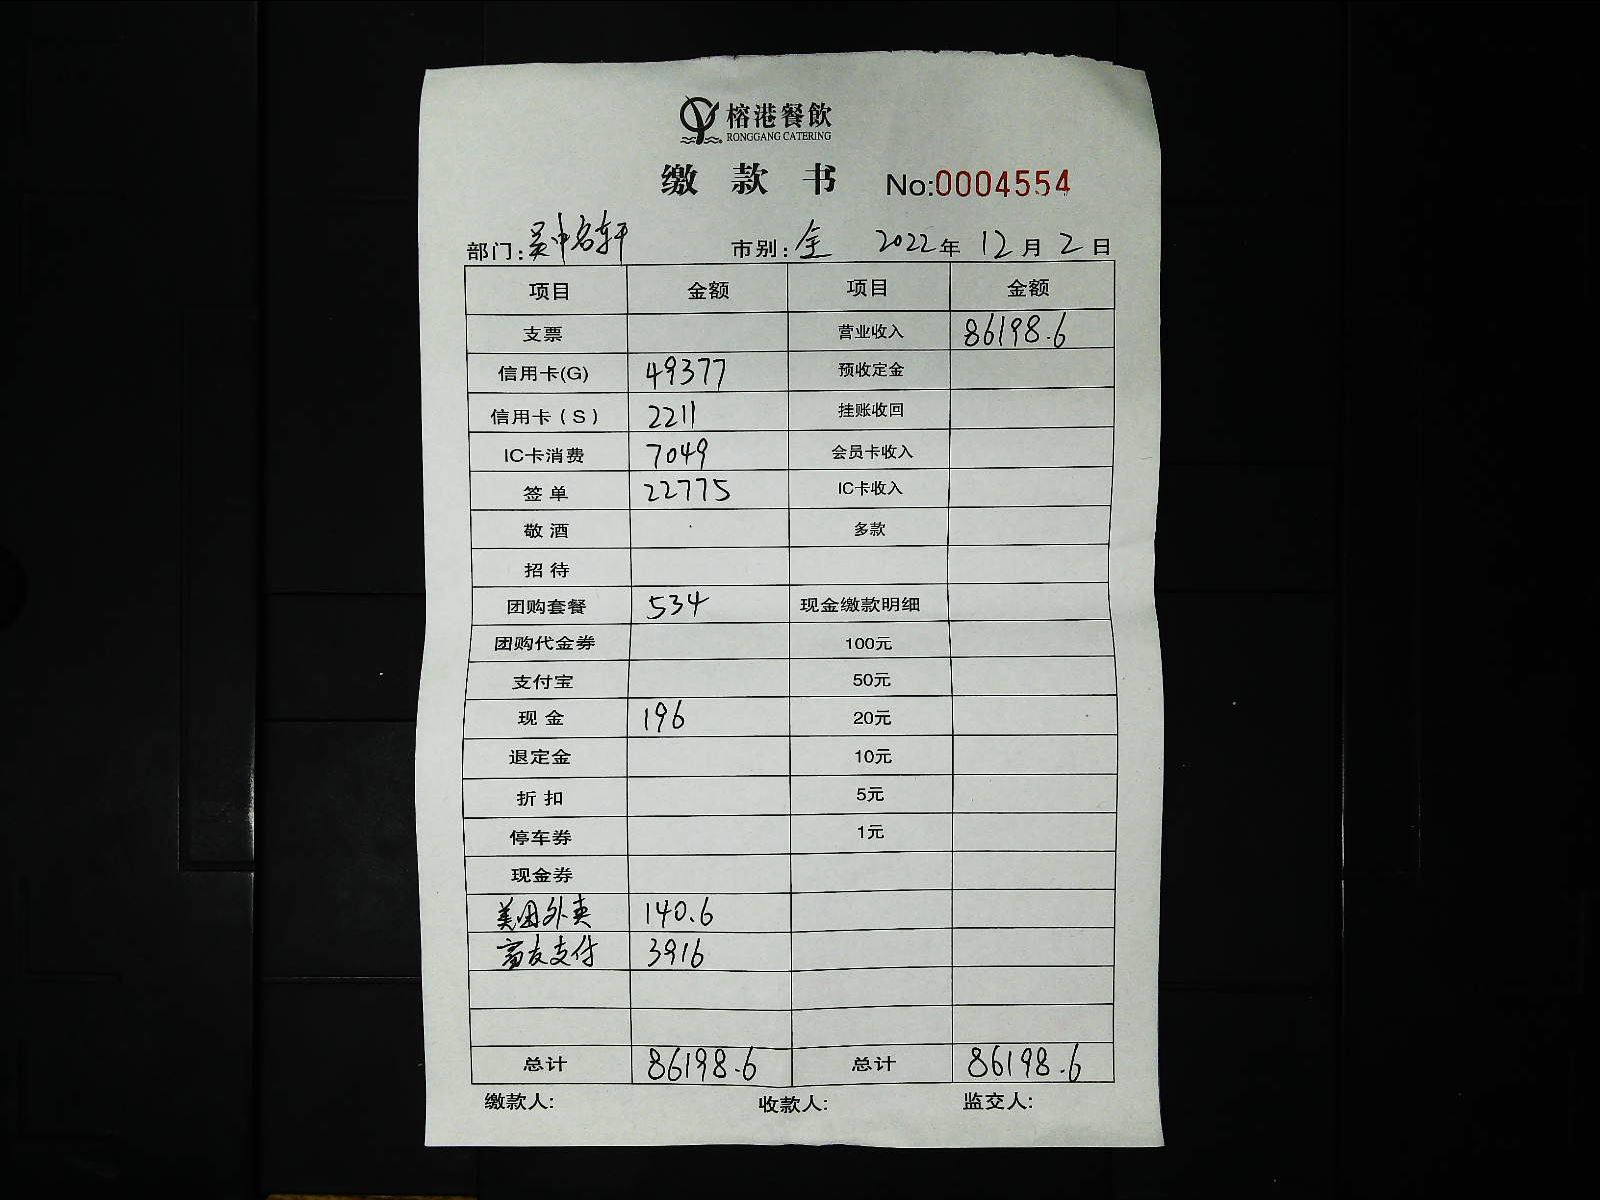 榕港餐飲
RONGGANG CATERING
缴款书 No:0004554
部门:吴中名轩 市别:全 2022年12月2日
项目 金额 项目 金额
支票 营业收入 86198.6
信用卡(G) 49377 预收定金
信用卡(S) 2211 挂账收回
IC卡消费 7049 会员卡收入
签单 22775 IC卡收入
敬酒 多款
招待
团购套餐 534 现金缴款明细
团购代金券 100元
支付宝 50元
现金 196 20元
退定金 10元
折扣 5元
停车券 1元
现金券
美团外卖 140.6
富友支付 3916
总计 86198.6 总计 86198.6
缴款人: 收款人: 监交人: